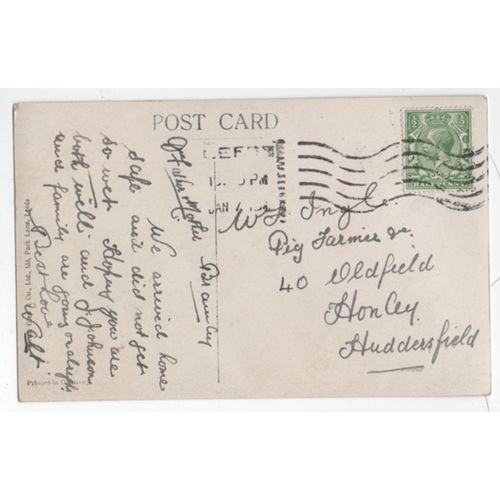 POST CARD
LEEDS
PM
JAN
HALFPENNY
Bramley
We arrived home
safe and did not get
so wet Hoping you are
both well and J. Johnson
and family are going on alright
Best Love
Walt
Mr Ingle
Pig Farmer &c
40 Oldfield
Honley
Huddersfield
Co., Ltd., Park Lane, Leeds
Printed in